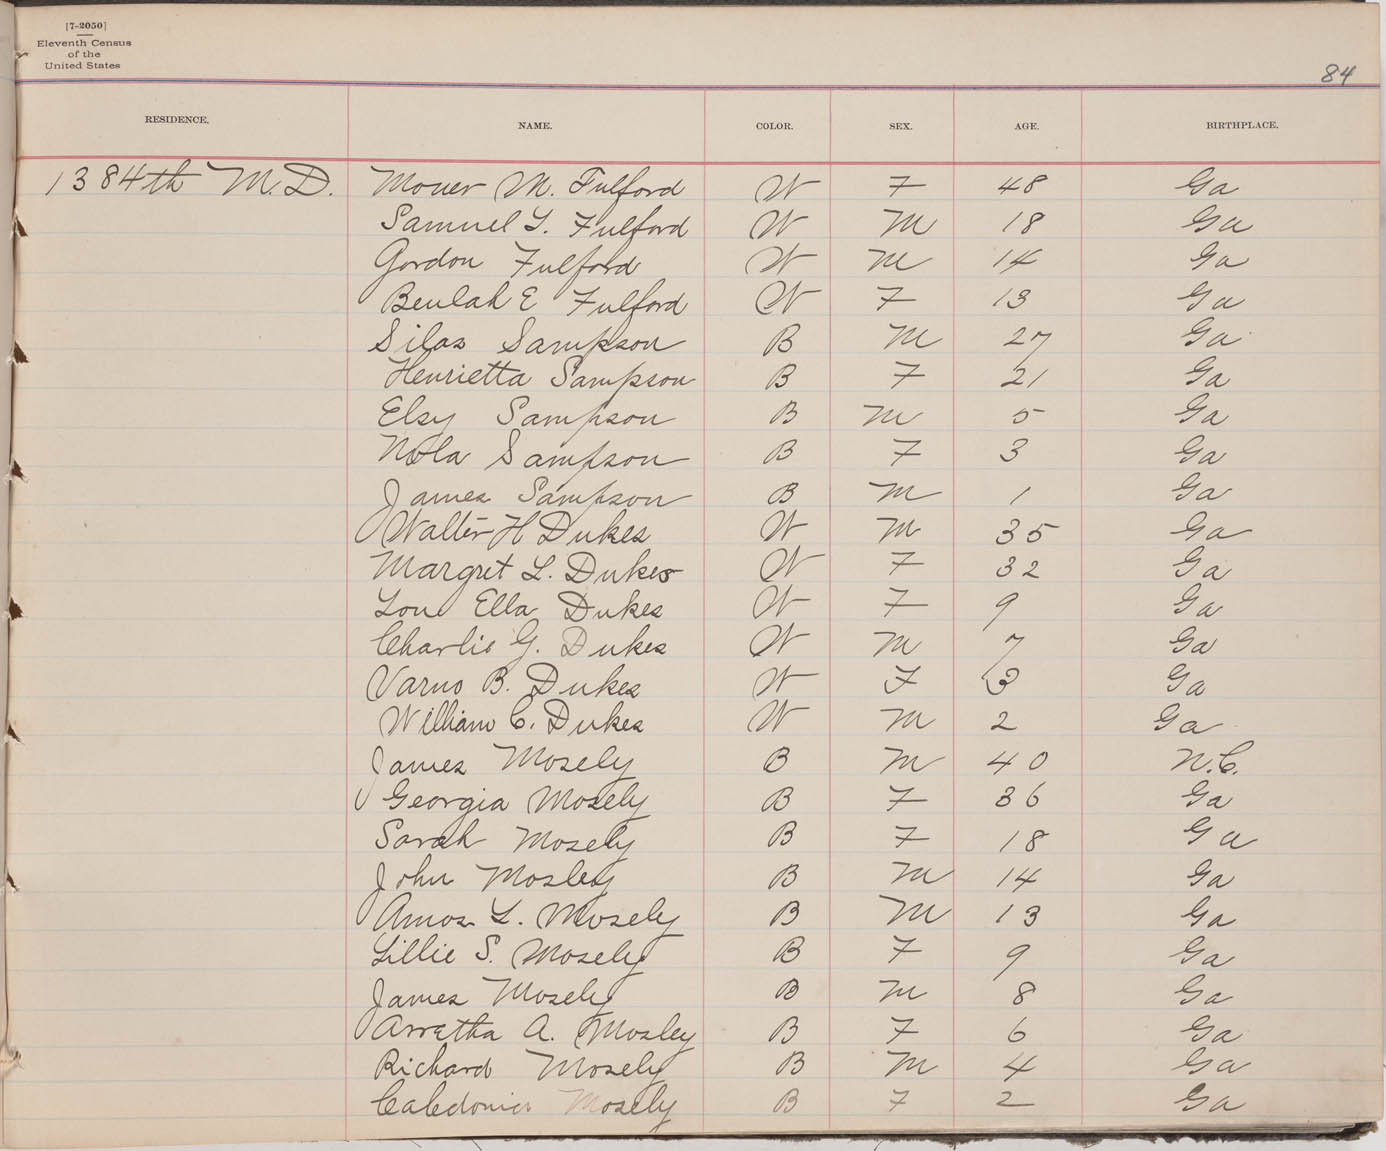 [7-2050]
Eleventh Census
of the
United States
84
RESIDENCE. NAME. COLOR. SEX. AGE. BIRTHPLACE.
1384th M.D. M. Fulford W F 48 Ga
Samuel L. Fulford W M 18 Ga
Gordon Fulford W M 14 Ga
Beulah E Fulford W F 13 Ga
Silas Sampson B M 27 Ga
Henrietta Sampson B F 21 Ga
Elsy Sampson B M 5 Ga
Nola Sampson B F 3 Ga
James Sampson B M 1 Ga
Walter H Dukes W M 35 Ga
Margret L. Dukes W F 32 Ga
Lou Ella Dukes W F 9 Ga
Charlie G. Dukes W M 7 Ga
B. Dukes W F 3 Ga
William C. Dukes W M 2 Ga
James Mosely B M 40 N.C.
Georgia Mosely B F 36 Ga
Sarah Mosely B F 18 Ga
John Mosley B M 14 Ga
Amos L. Mosely B M 13 Ga
Lillie S. Mosely B F 9 Ga
James Mosely B M 8 Ga
Arretha A. Mosley B F 6 Ga
Richard Mosely B M 4 Ga
Caledonia Mosely B F 2 Ga